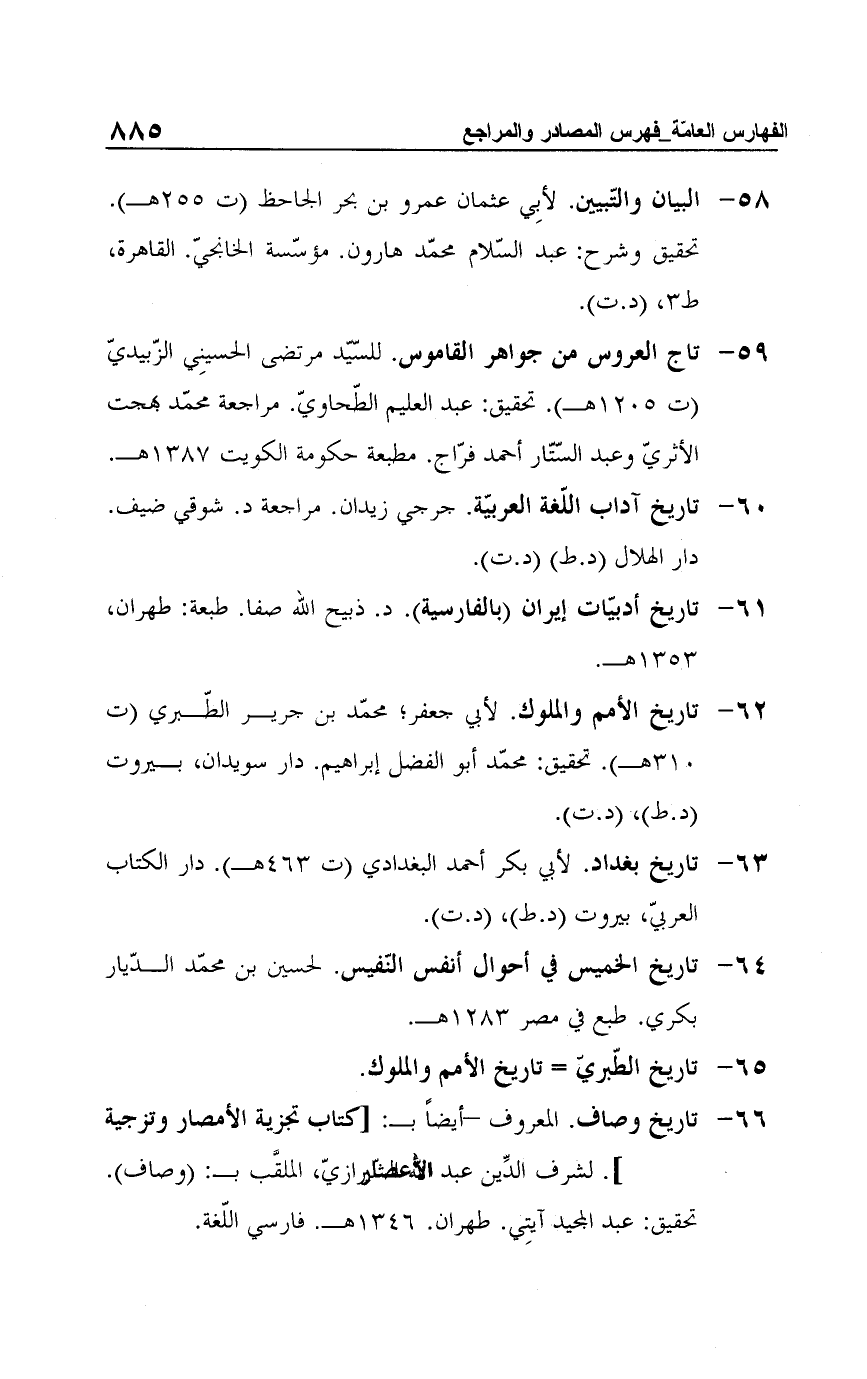 الفهارس العامّة_فهرس المصادر والمراجع ٨٨٥
٥٨- البيان والتّبيين. لأبي عثمان عمرو بن بحر الجاحظ (ت ٢٥٥هـ).
تحقيق وشرح: عبد السّلام محمّد هارون. مؤسّسة الخانجيّ. القاهرة،
ط٣، (د.ت).
٥٩- تاج العروس من جواهر القاموس. للسّيّد مرتضى الحسيني الزّبيديّ
(ت ١٢٠٥هـ). تحقيق: عبد العليم الطّحاويّ. مراجعة محمّد بهجت
الأثريّ وعبد السّتّار أحمد فرّاج. مطبعة حكومة الكويت ١٣٨٧هـ.
٦٠- تاريخ آداب اللّغة العربيّة. جرجي زيدان. مراجعة د. شوقي ضيف.
دار الهلال (د.ط) (د.ت).
٦١- تاريخ أدبيّات إيران (بالفارسية). د. ذبيح الله صفا. طبعة: طهران،
١٣٥٣هـ.
٦٢- تاريخ الأمم والملوك. لأبي جعفر؛ محمّد بن جرير الطّبري (ت
٣١٠هـ). تحقيق: محمّد أبو الفضل إبراهيم. دار سويدان، بيروت
(د.ط)، (د.ت).
٦٣- تاريخ بغداد. لأبي بكر أحمد البغدادي (ت ٤٦٣هـ). دار الكتاب
العربيّ، بيروت (د.ط)، (د.ت).
٦٤- تاريخ الخميس في أحوال أنفس النّفيس. لحسين بن محمّد الدّيار
بكري. طبع في مصر ١٢٨٣هـ.
٦٥- تاريخ الطّبريّ = تاريخ الأمم والملوك.
٦٦- تاريخ وصاف. المعروف -أيضاً بـ: [كتاب تجزية الأمصار وتزجية
]. لشرف الدِّين عبد الملقّب بـ: (وصاف).
تحقيق: عبد المجيد آيتي. طهران. ١٣٤٦هـ. فارسي اللّغة.